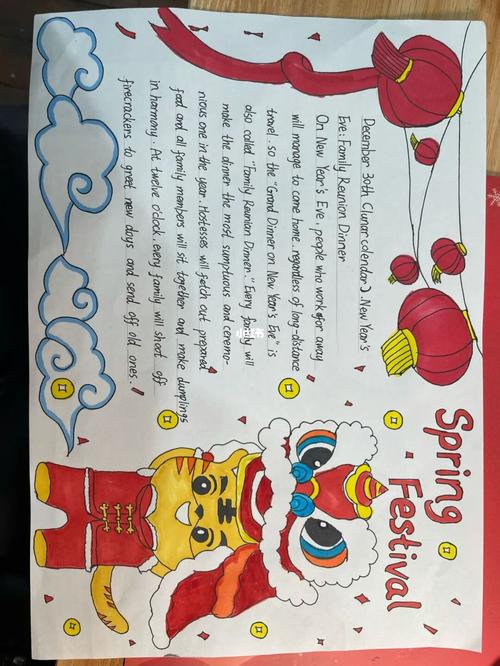 Spring
Festival
December 30th (lunar calendar), New Year's
Eve: Family Reunion Dinner
On New Year's Eve, people who work far away
will manage to come home, regardless of long-distance
travel. so the "Grand Dinner on New Year's Eve" is
also called "Family Reunion Dinner." Every family will
make the dinner the most sumptuous and ceremo-
nious one in the year. Hostesses will fetch out prepared
food and all family members will sit together and make dumplings
in harmony. At twelve o'clock, every family will shoot off
firecrackers to greet new days and send off old ones.
小红书